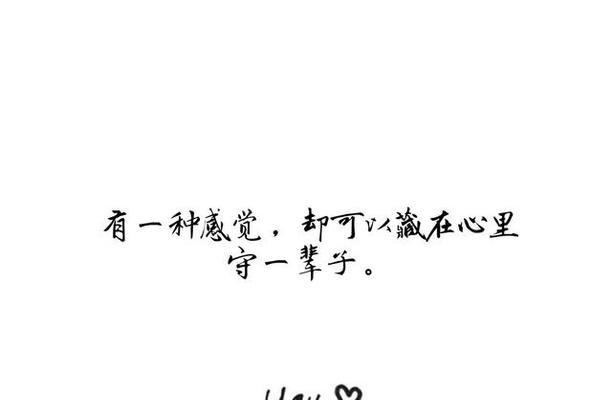 有一种感觉，却可以藏在心里
守一辈子。